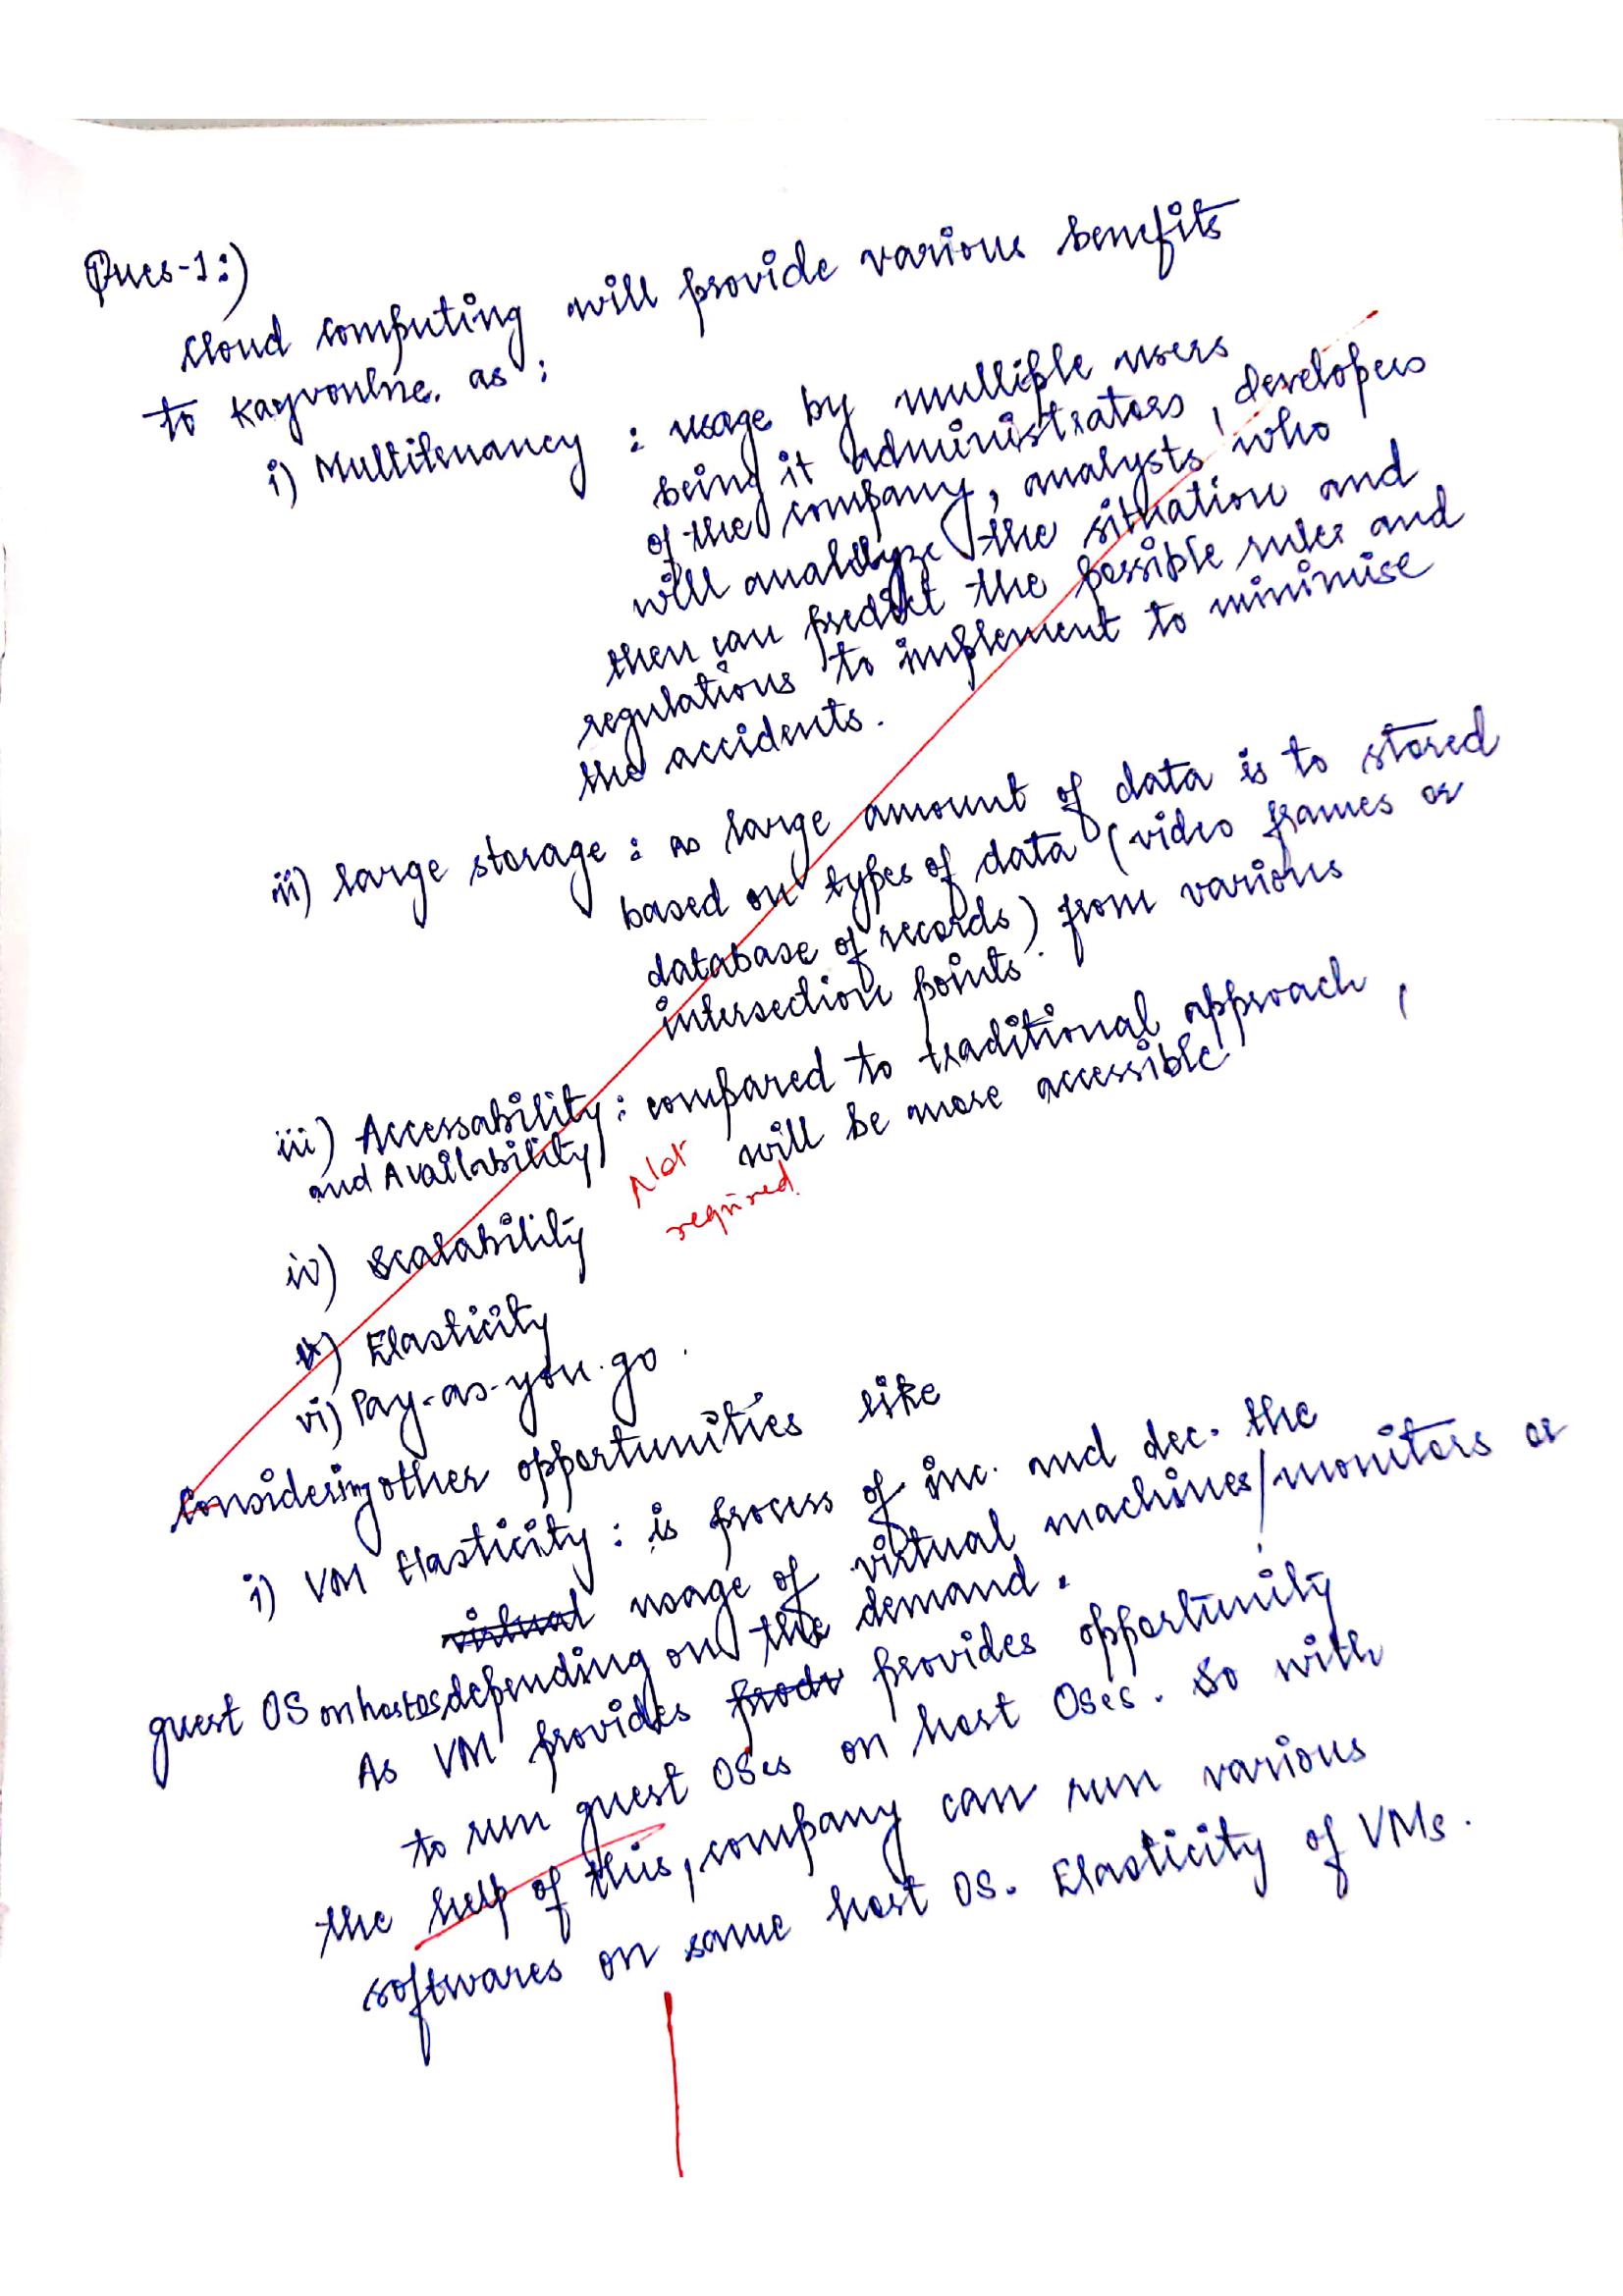 Ques-1:)
Cloud computing will provide various benefits
to Kayvonlne. as :
i) Multitenancy : usage by mullible users
being it administrators, developers
of the company, analysts who
will analyze the situation and
then can predict the possible rules and
regulations to implement to minimise
the accidents.
ii) large storage : as large amount of data is to stored
based on types of data (video frames or
database of records) from various
intersection points.
iii) Accessability : compared to traditional approach,
and Availability will be more accessible.
Not
required.
iv) Scalability
v) Elasticity
vi) Pay-as-you-go.
Considering other opportunities like
i) VM Elasticity : is process of inc. and dec. the
virtual usage of virtual machines/monitors or
guest OS on host OS depending on the demand.
As VM provides provides opportunity
to run guest OSes on host OSes. So with
the help of this, company can run various
softwares on same host OS. Elasticity of VMs.